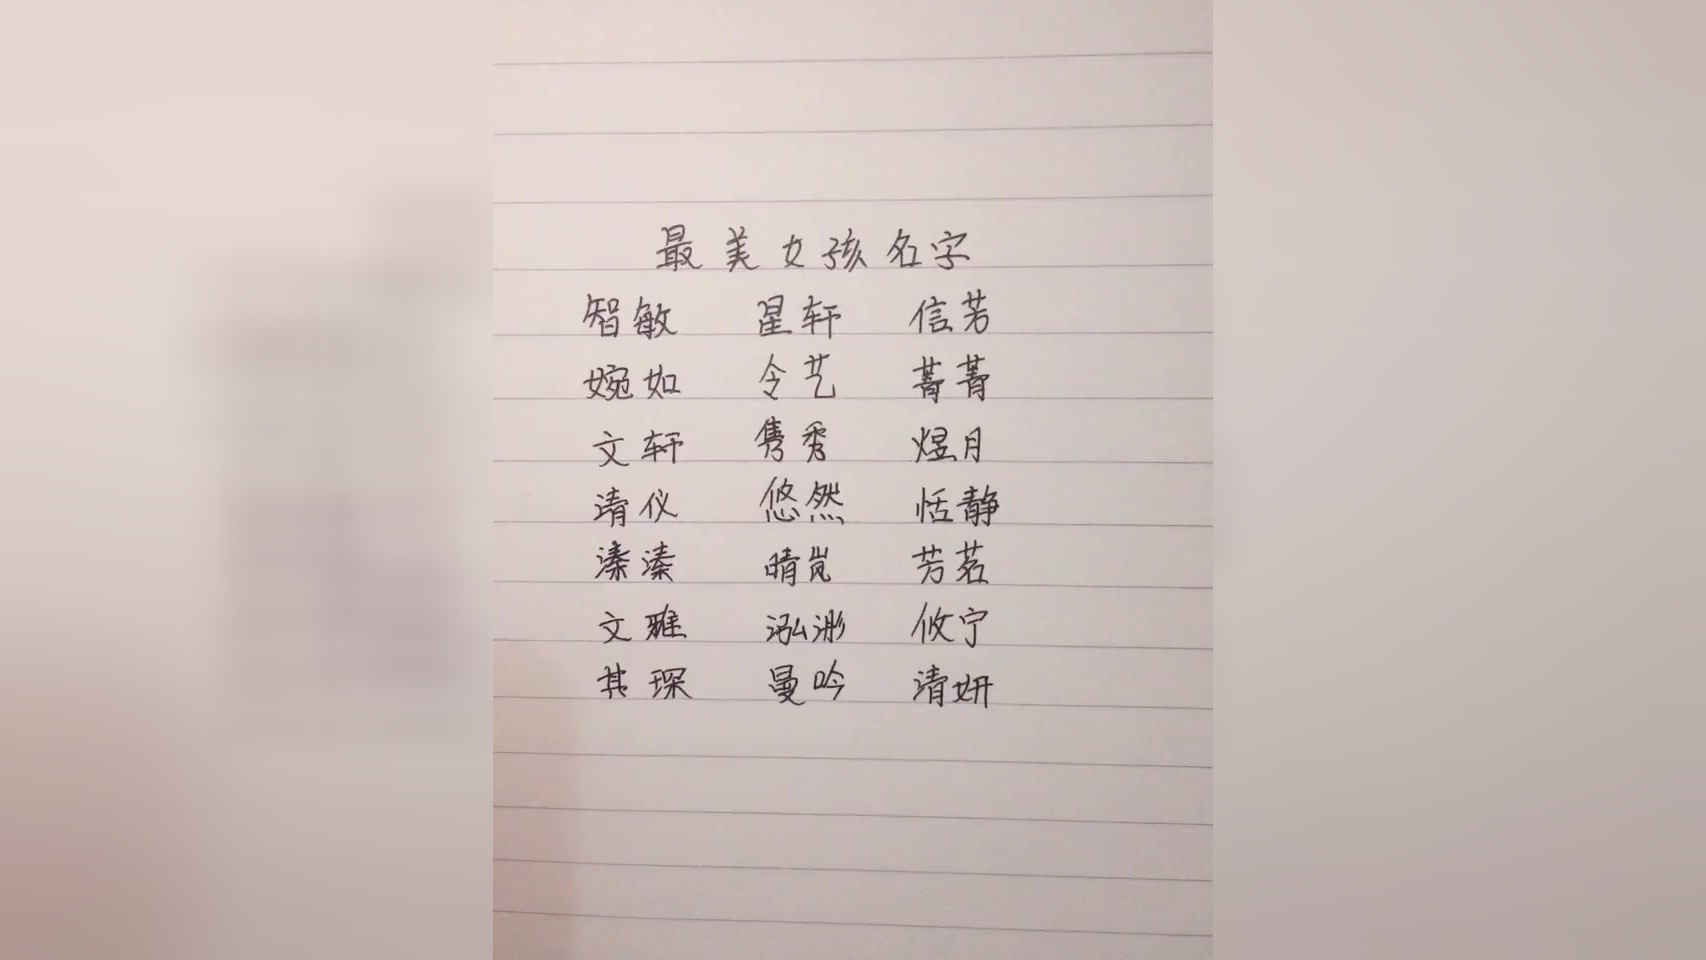 最美女孩名字
智敏 星轩 信芳
婉如 令艺 菁菁
文轩 隽秀 煜月
清仪 悠然 恬静
溱溱 晴岚 芳茗
文雅 泓渺 攸宁
其琛 曼吟 清妍